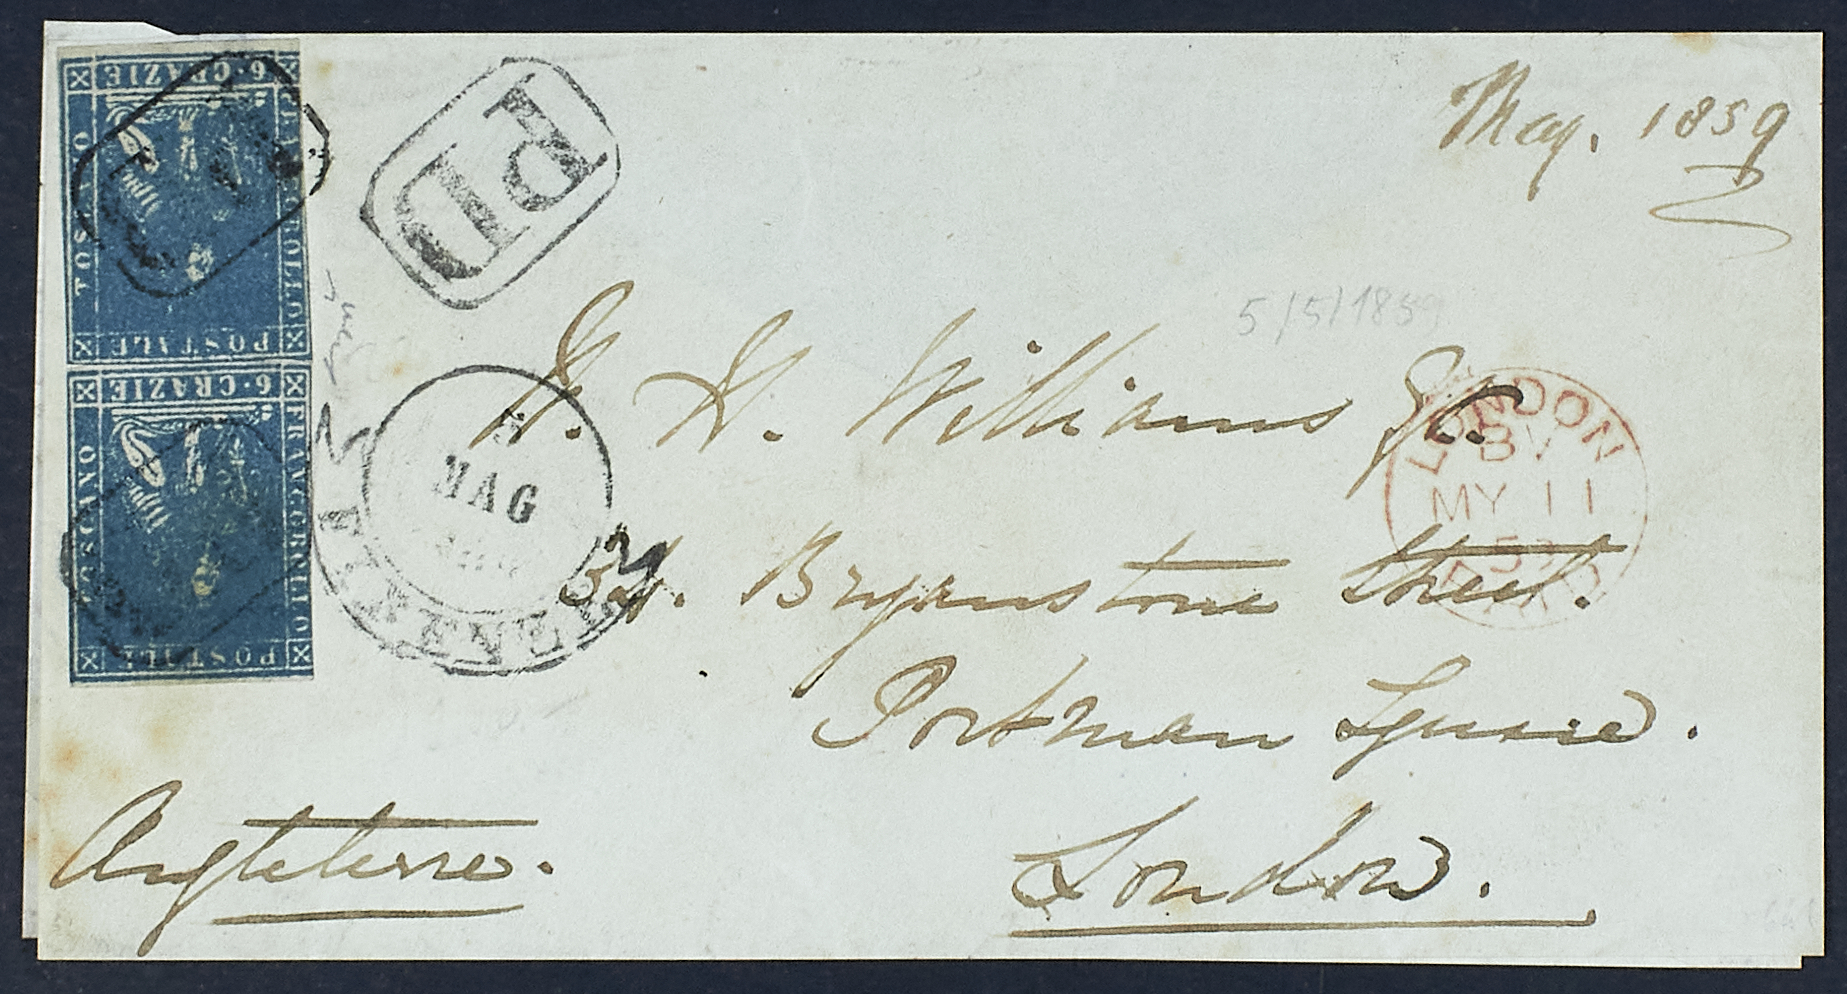 May. 1859
6·CRAZIE
FRANCOBOLLO
POSTALE
TOSCANO
6·CRAZIE
FRANCOBOLLO
POSTALE
TOSCANO
PD
PD
5/5/1859
W. H. Williams
5
MAG
FIRENZE
LONDON
BV
MY 11
59
PAID
Bryanstone Street.
Portman Square.
London.
Angleterre.